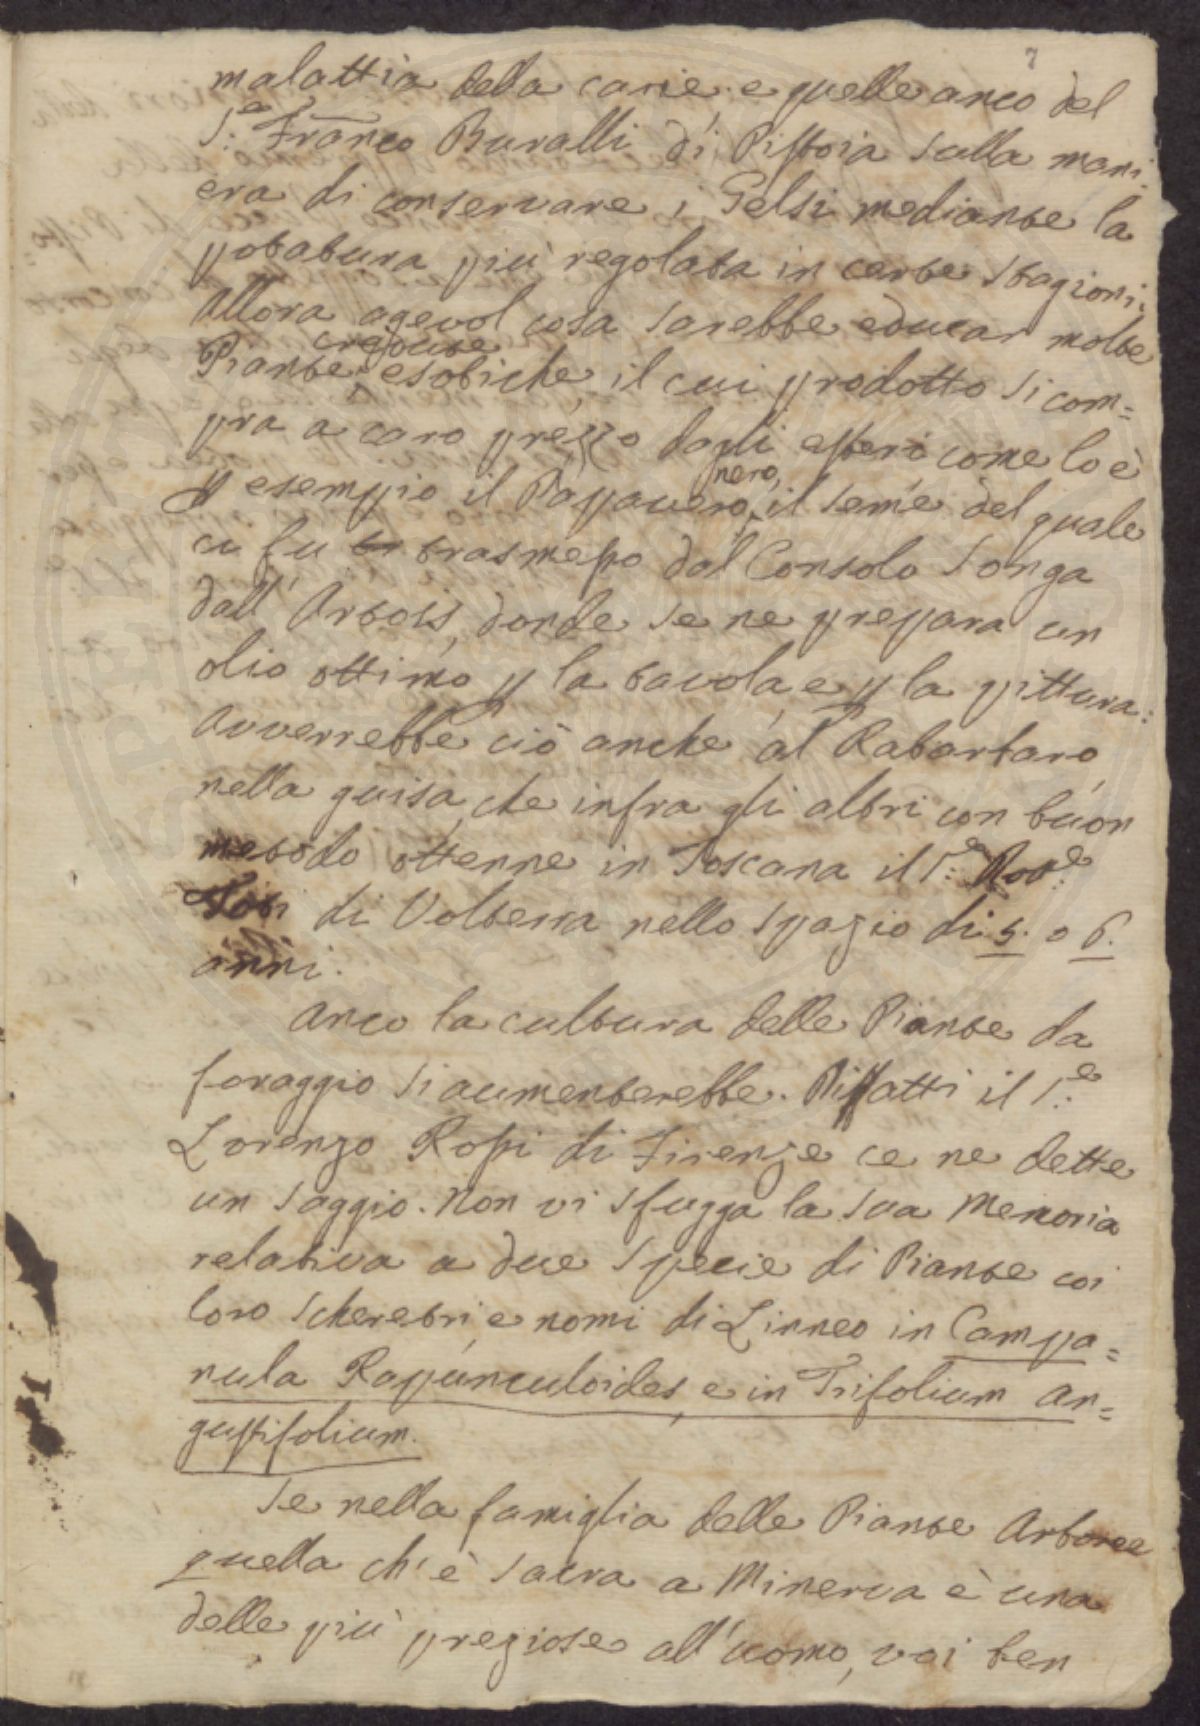 7
malattia della carie; e quelle anco del
S.e Franco Buralli di Pistoia sulla mani:
era di conservare i Gelsi mediante la
potatura più regolata in certe stagioni.
Allora agevol cosa sarebbe educar molte
credute
Piante esotiche, il cui prodotto si com=
pra a caro prezzo dagli esteri come lo è
nero,
p esempio il Papavero il seme del quale
ci fu trasmesso dal Consolo Songa
dall'Artois, donde se ne prepara un
olio ottimo p la tavola, e p la pittura:
Avverrebbe ciò anche al Rabarbaro
nella guisa, che infra gli altri con buon
metodo ottenne in Toscana il S.e
di Volterra nello spazio di 5. o 6.
anni.
Anco la cultura delle Piante da
foraggio si aumenterebbe. Diffatti il S.e
Lorenzo Rossi di Firenze ce ne dette
un saggio. Non vi sfugga la sua Memoria
relativa a due specie di Piante coi
loro Scheretri, e nomi di Linneo in Campa=
nula Rapunculoides, e in Trifolium an=
gustifolium.
Se nella famiglia delle Piante Arboree
quella ch'è sacra a Minerva è una
delle più preziose all'uomo, voi ben